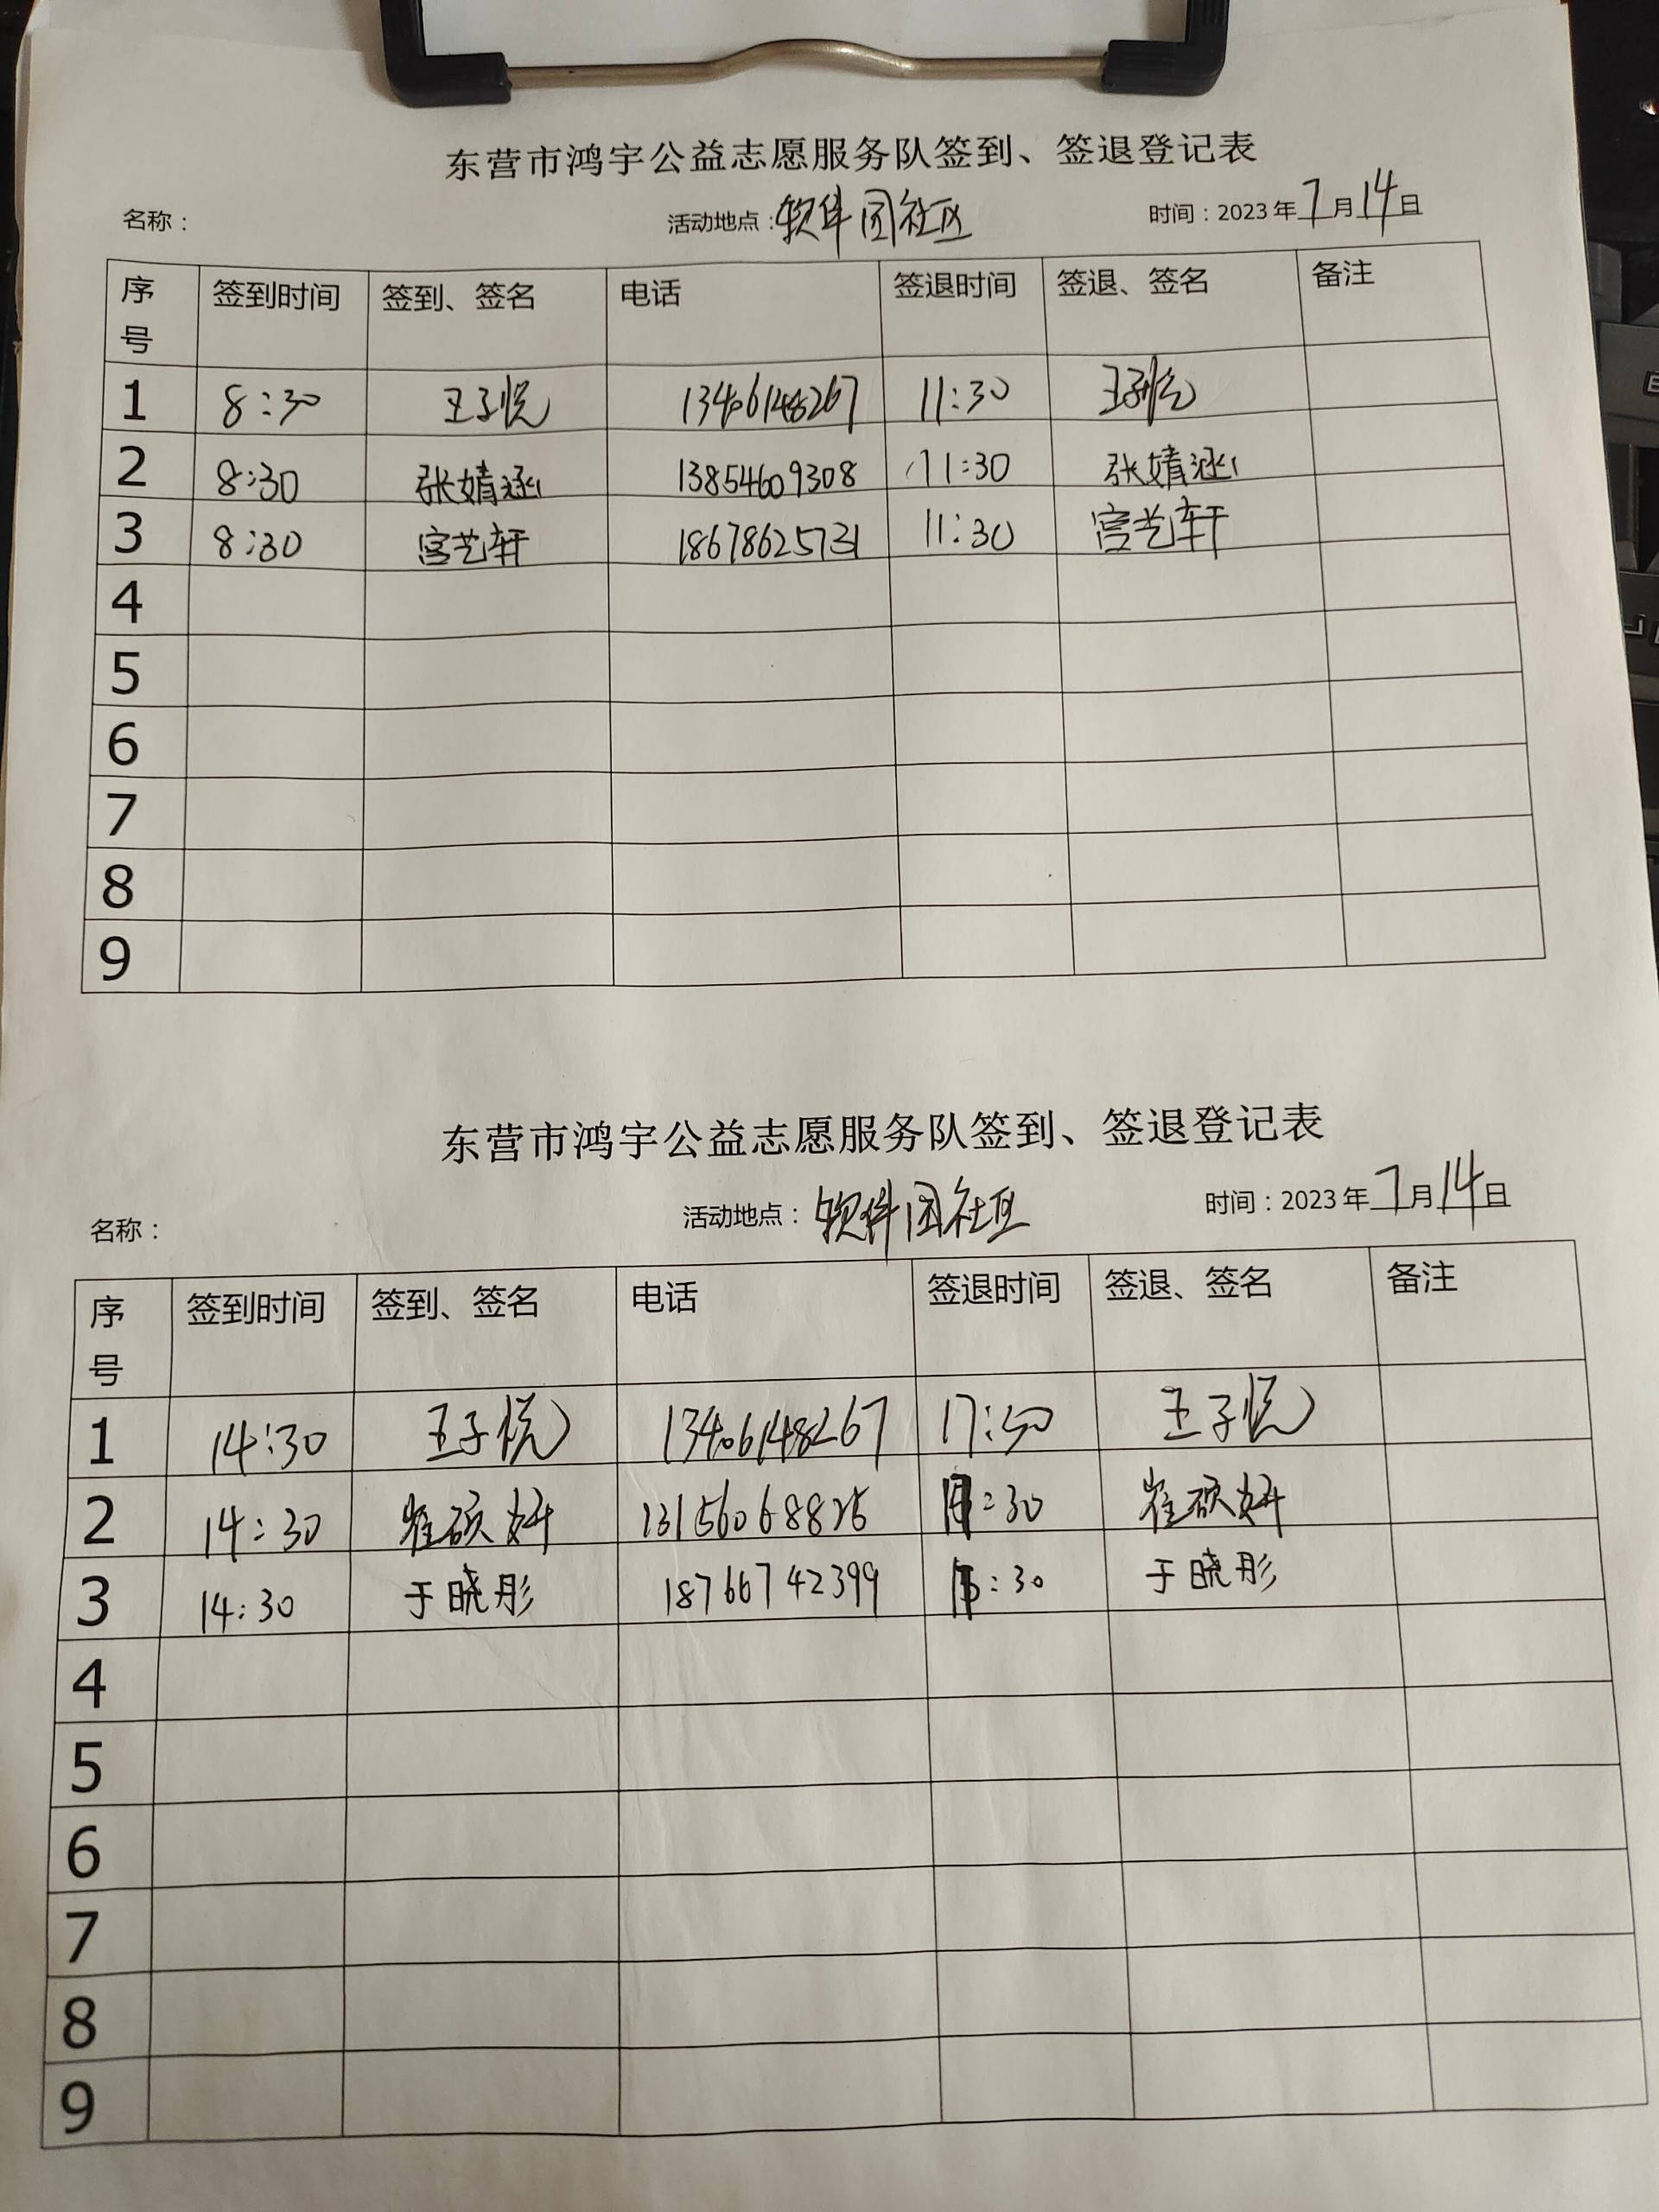 东营市鸿宇公益志愿服务队签到、签退登记表
名称： 活动地点：软件园社区 时间：2023年7月14日
序号 签到时间 签到、签名 电话 签退时间 签退、签名 备注
1 8:30 王子悦 13406148267 11:30 王子悦
2 8:30 张婧涵 13854609308 11:30 张婧涵
3 8:30 宫艺轩 18678625731 11:30 宫艺轩
4
5
6
7
8
9
东营市鸿宇公益志愿服务队签到、签退登记表
名称： 活动地点：软件园社区 时间：2023年7月14日
序号 签到时间 签到、签名 电话 签退时间 签退、签名 备注
1 14:30 王子悦 13406148267 17:30 王子悦
2 14:30 崔硕妍 13156068825 :30 崔硕妍
3 14:30 于晓彤 18766742399 :30 于晓彤
4
5
6
7
8
9